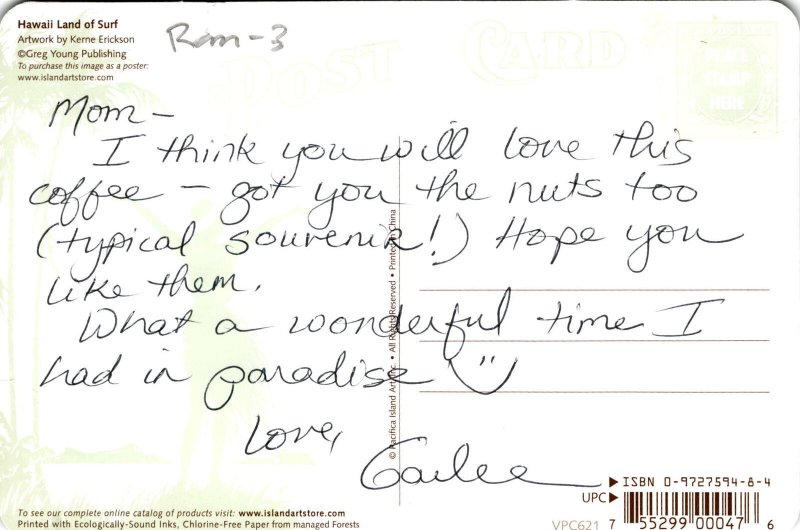 Hawaii Land of Surf
Artwork by Kerne Erickson
©Greg Young Publishing
To purchase this image as a poster:
www.islandartstore.com
Rm-3
POST CARD
Mom-
I think you will love this
coffee - got you the nuts too
(typical souvenir!) Hope you
like them.
What a wonderful time I
had in paradise
Love,
© Pacifica Island Art, Inc. • All Rights Reserved • Printed in China
ISBN 0-9727594-8-4
UPC
To see our complete online catalog of products visit: www.islandartstore.com
Printed with Ecologically-Sound Inks, Chlorine-Free Paper from managed Forests
VPC621 7 55299 00047 6